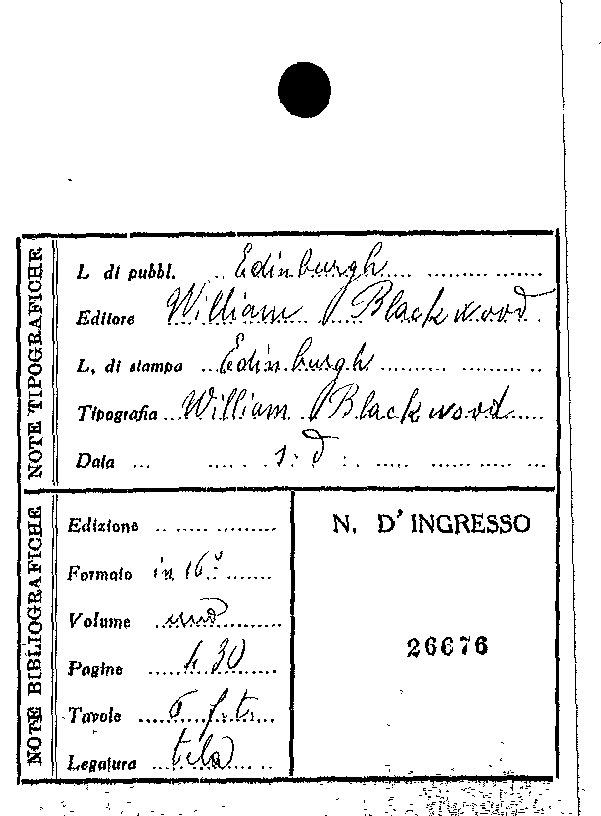 NOTE TIPOGRAFICHE
L di pubbl. Edinburgh
Editore William Blackwood
L. di stampa Edinburgh
Tipografia William Blackwood
Data s. d.
NOTE BIBLIOGRAFICHE
Edizione
Formato in 16º
Volume uno
Pagine 430
Tavole f. t.
Legatura tela
N. D'INGRESSO
26676